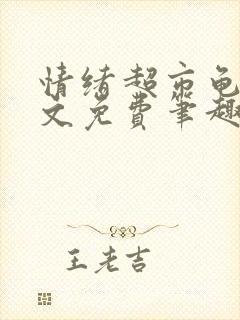 情绪超市龟
文免费笔趣
王老吉